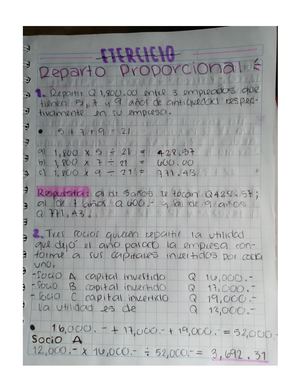 EJERCICIO
Reparto Proporcional
1. Repartir Q 1,800.00 entre 3 empleados que
tienen 5, 7 y 9 años de antigüedad respec-
tivamente en su empresa.
• 5 + 7 + 9 = 21
a) 1,800 x 5 ÷ 21 = 428.57
b) 1,800 x 7 ÷ 21 = 600.00
c) 1,800 x 9 ÷ 21 = 771.43
Respuesta: al de 5 años le tocan Q428.57;
al de 7 años Q 600.- y al de 9 años
Q 771.43.-
2. Tres socios quieren repartir la utilidad
que dejó el año pasado la empresa con-
forme a sus capitales invertidos por cada
uno.
-Socio A capital invertido Q 16,000.-
-Socio B capital invertido Q 17,000.-
-Socio C capital invertido Q 19,000.-
La utilidad es de Q 12,000.-
• 16,000.- + 17,000.- + 19,000.- = 52,000.-
Socio A
12,000.- x 16,000.- ÷ 52,000.- = 3,692.31